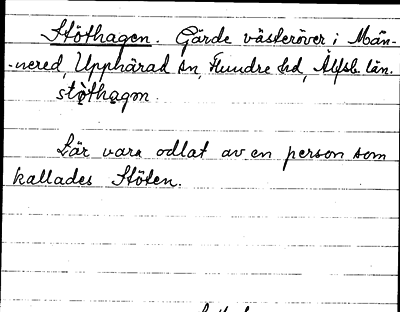 Stöthagen. Gärde västeröver i Män-
-nered, Upphärad sn, Flundre hd, Älfsb. län.
stöthagən.
Lär vara odlat av en person som
kallades Stöten.